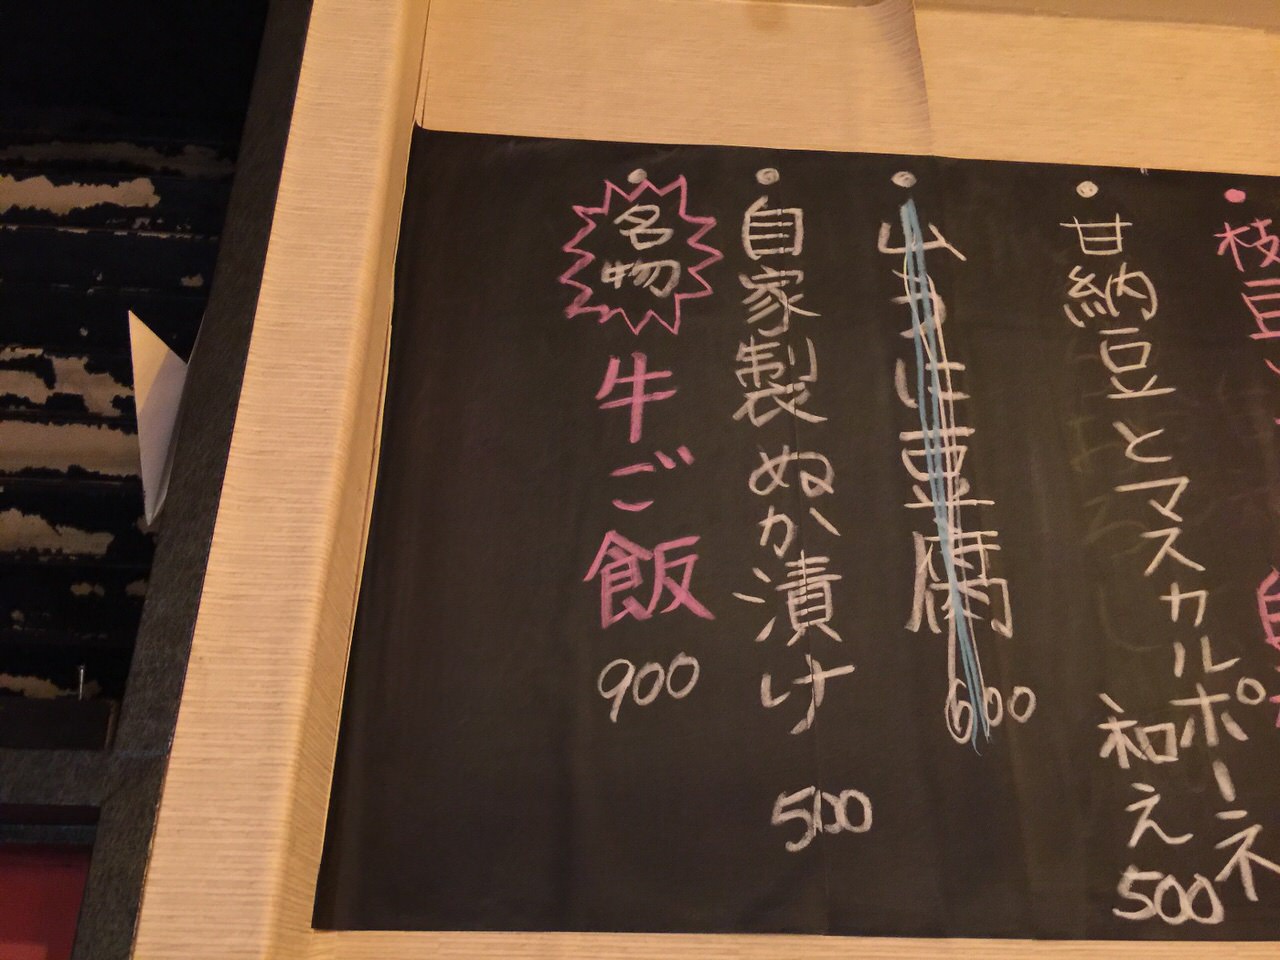 枝豆
甘納豆とマスカルポーネ
和え 500
山わさび豆腐 600
自家製ぬか漬け 500
名物 牛ご飯 900